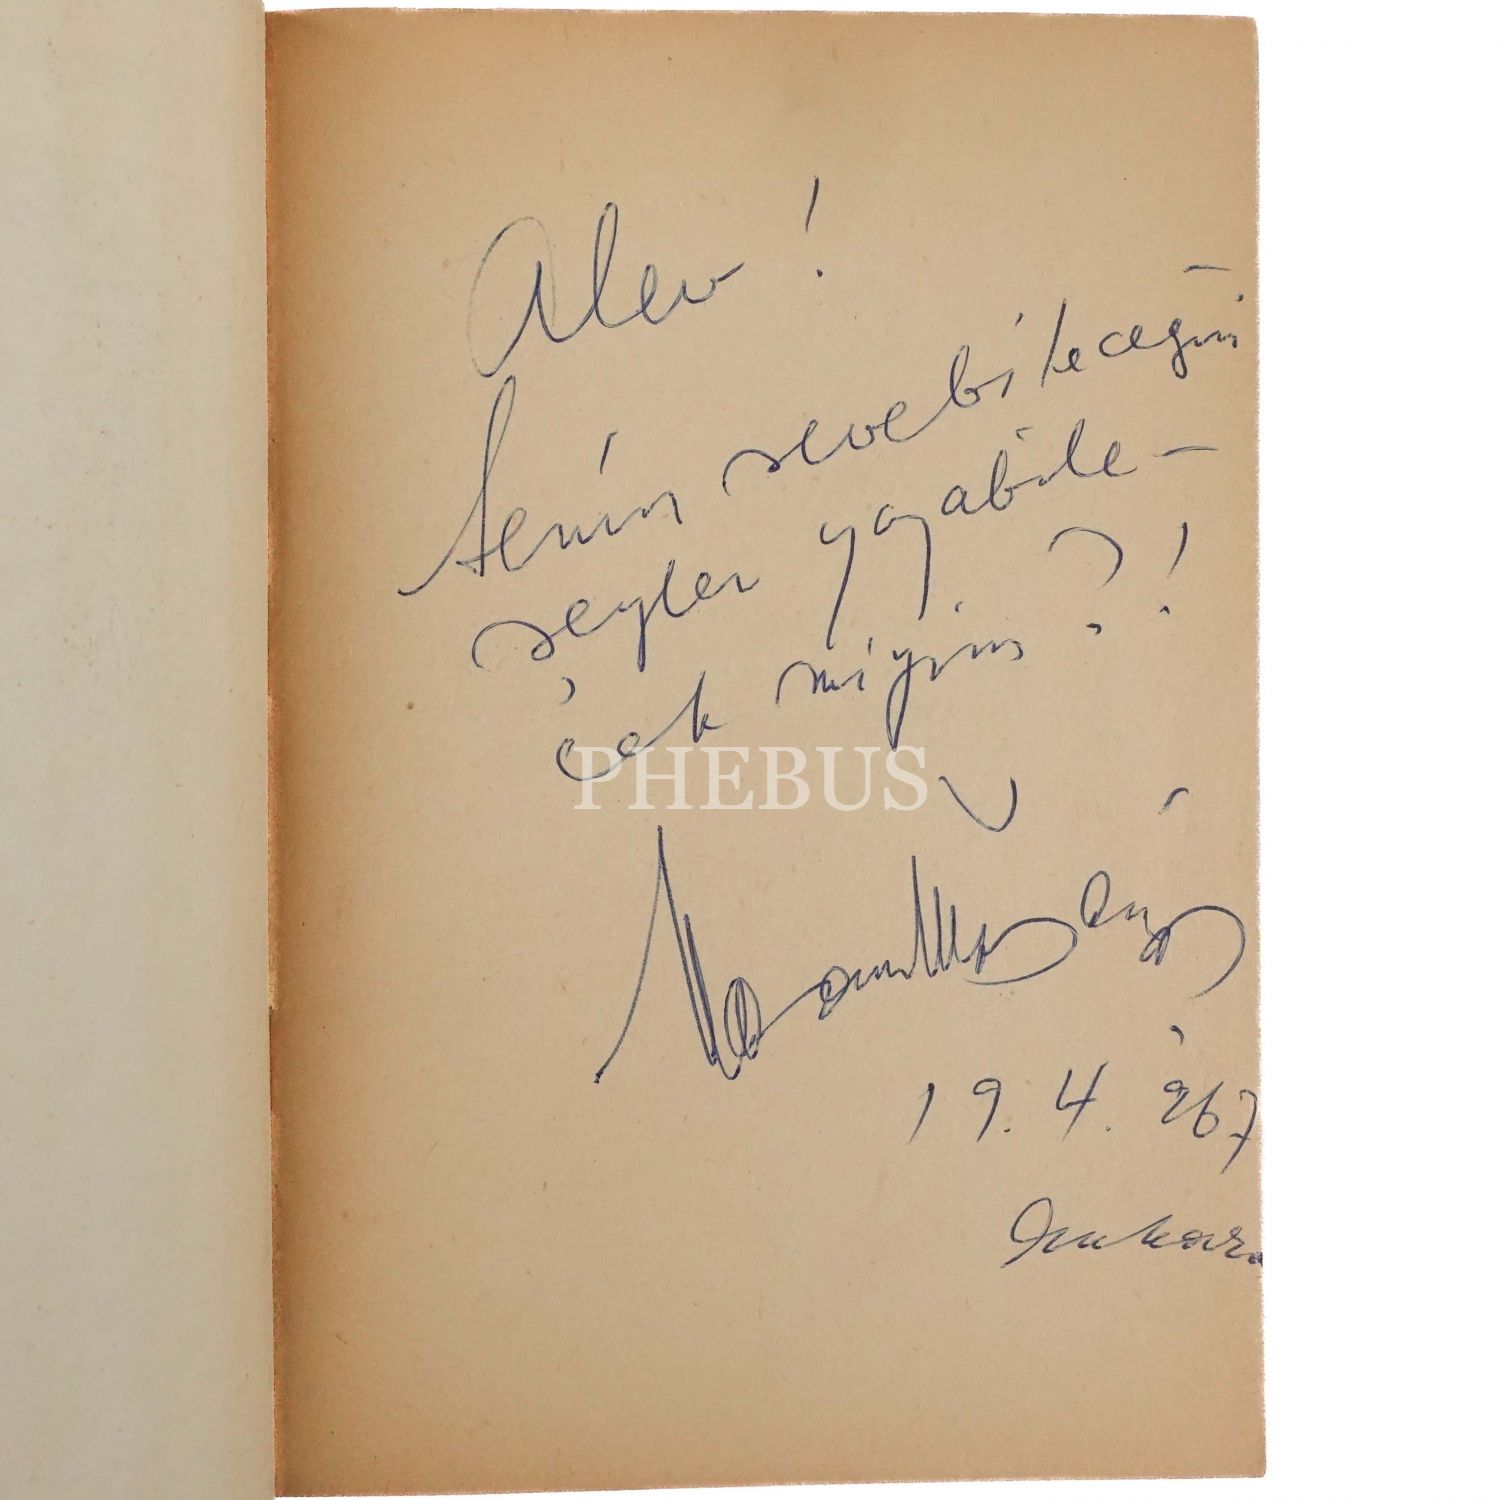 Alev!
Senin sevebileceğin
şeyler yazabile-
cek miyim?!
PHEBUS
19.4.967
Ankara